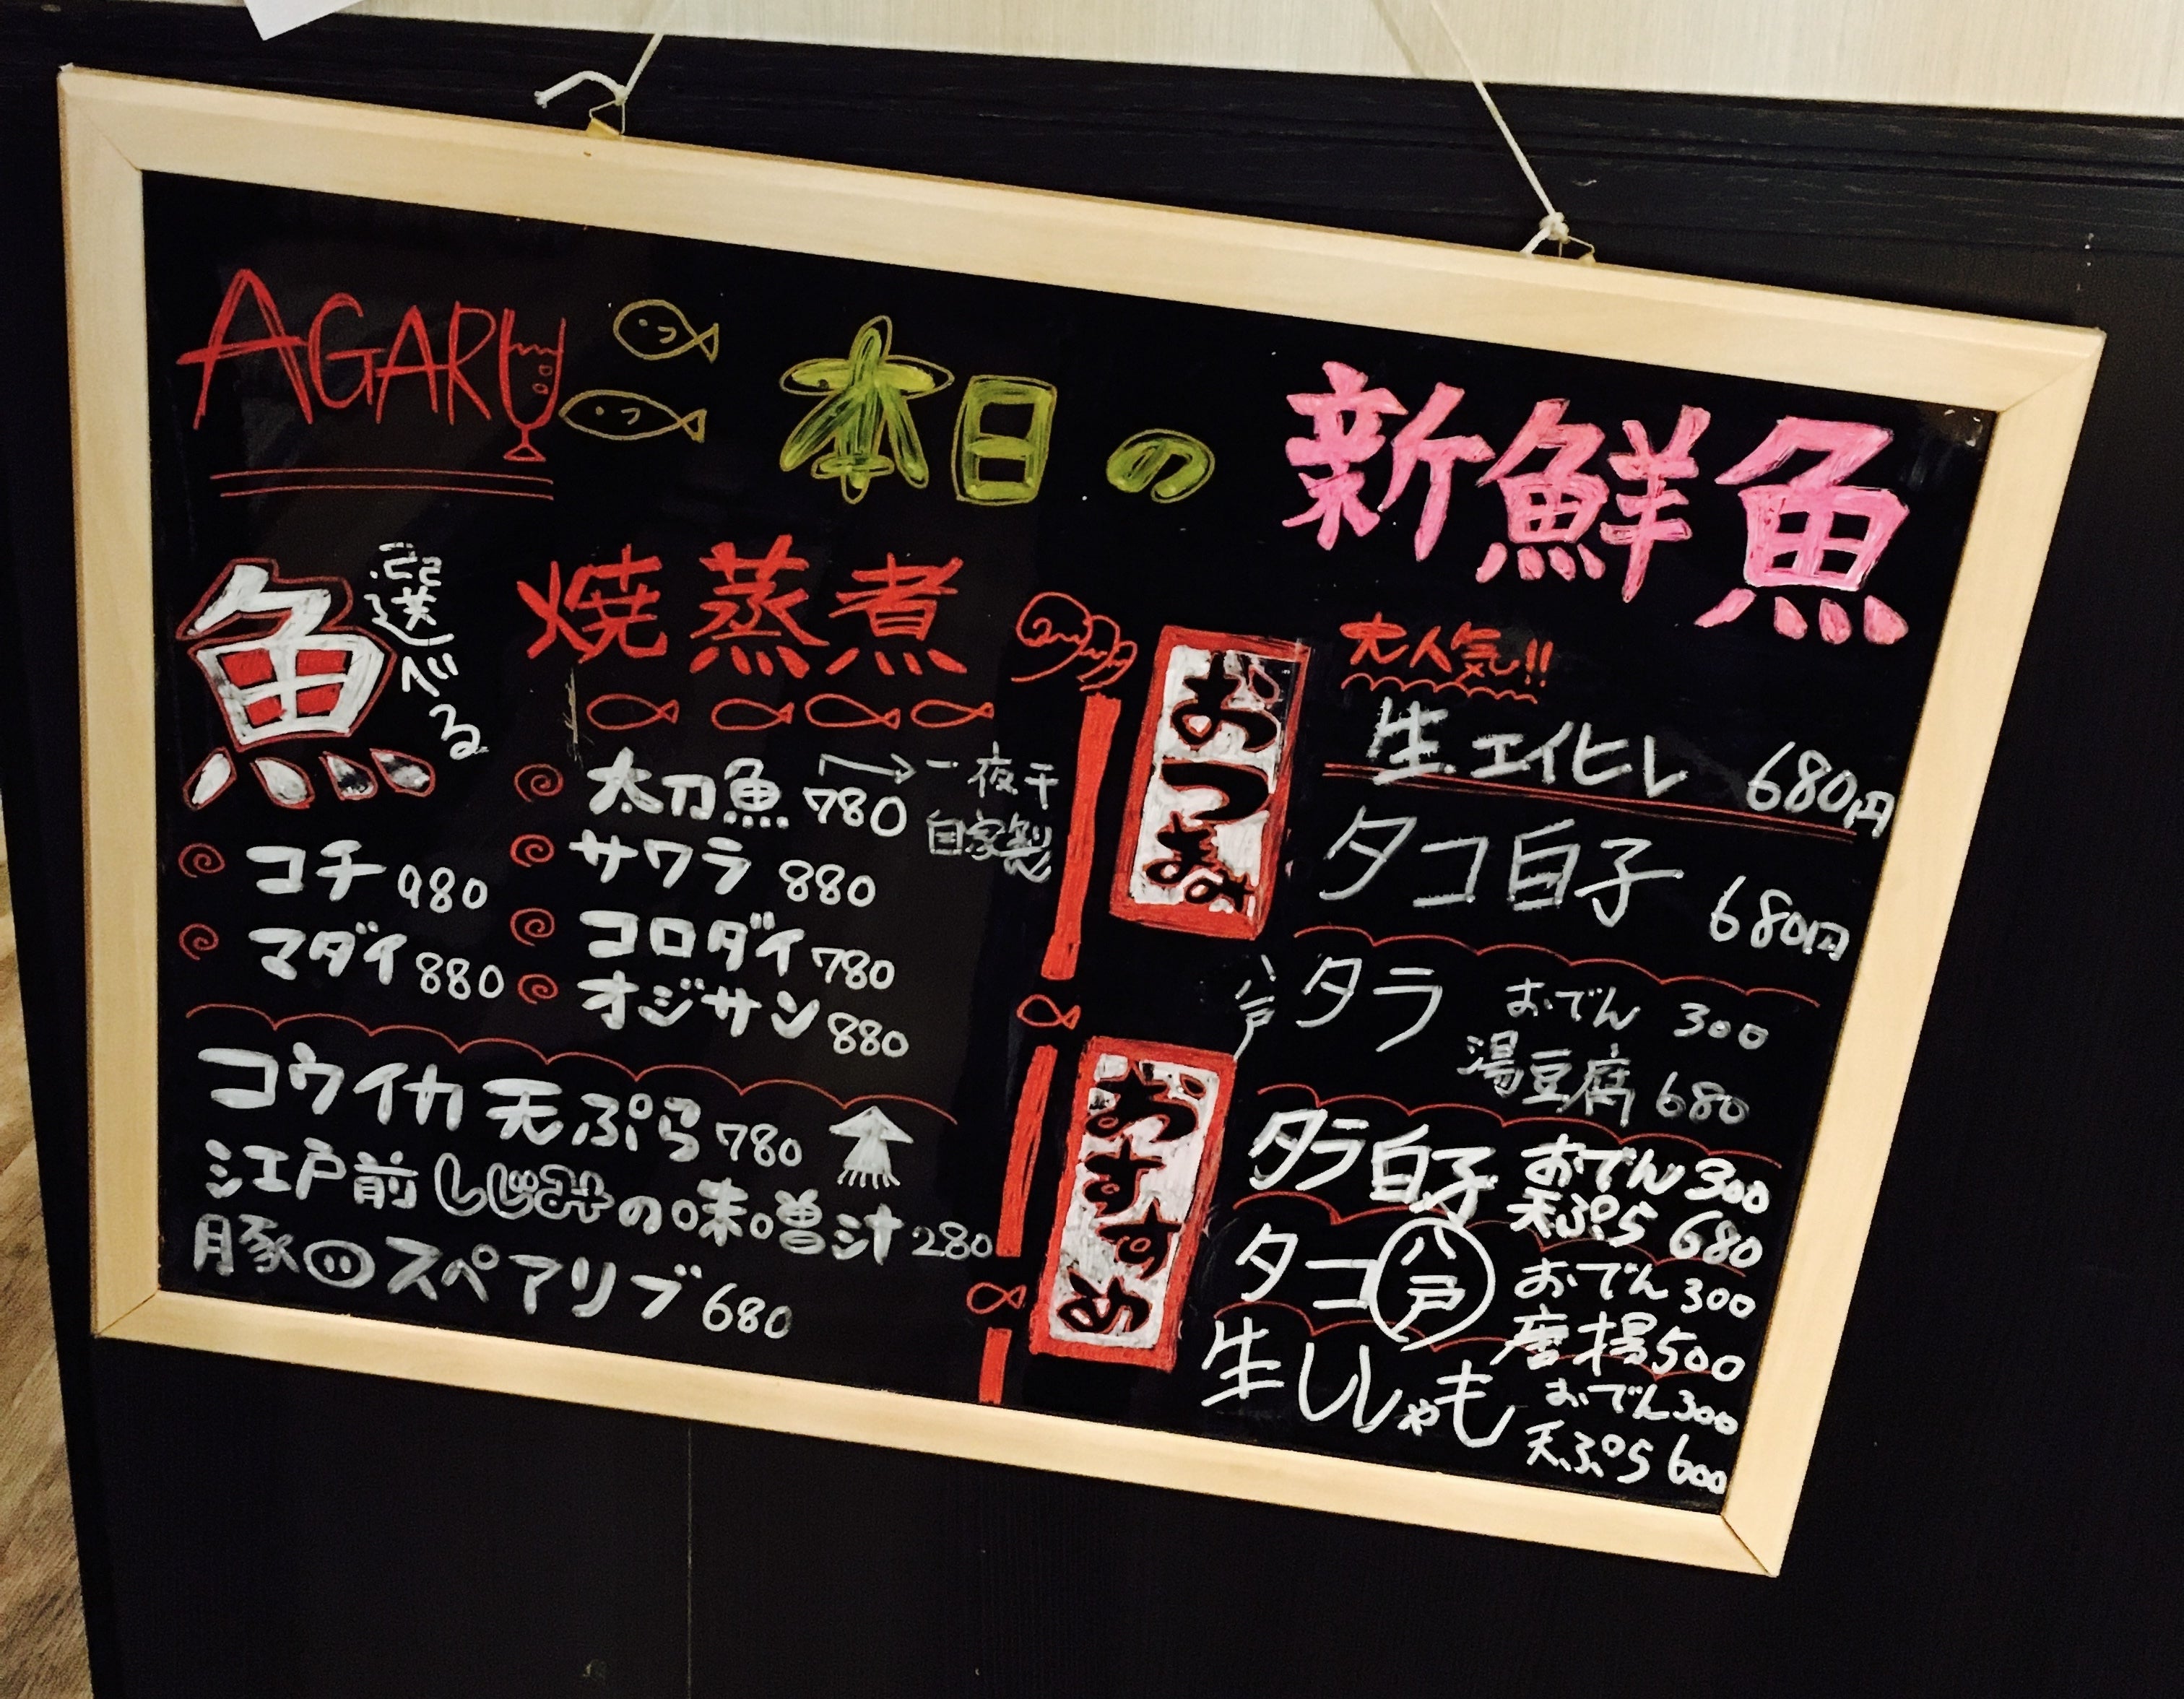 AGARU 本日の新鮮魚
選べる
魚
焼 蒸 煮
太刀魚 780 → 一夜干
自家製
コチ 980
サワラ 880
マダイ 880
コロダイ 780
オジサン 880
コウイカ 天ぷら 780
江戸前 しじみの味噌汁 280
豚 スペアリブ 680
おつまみ
おすすめ
大人気!!
生エイヒレ 680円
タコ白子 680円
八戸 タラ おでん 300
湯豆腐 680
タラ白子 おでん 300
天ぷら 680
タコ 八戸 おでん 300
唐揚 500
生ししゃも おでん 300
天ぷら 600